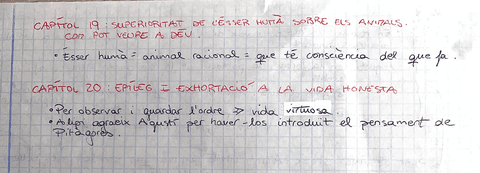 CAPÍTOL 19: SUPERIORITAT DE L'ÉSSER HUMÀ SOBRE ELS ANIMALS.
COM POT VEURE A DÉU.
• Ésser humà = animal racional = que té consciència del que fa.
CAPÍTOL 20: EPÍLEG I EXHORTACIÓ A LA VIDA HONESTA
• Per observar i guardar l'ordre ⇒ vida virtuosa.
• Alipi agraeix Agustí per haver-los introduit el pensament de
Pitàgores.